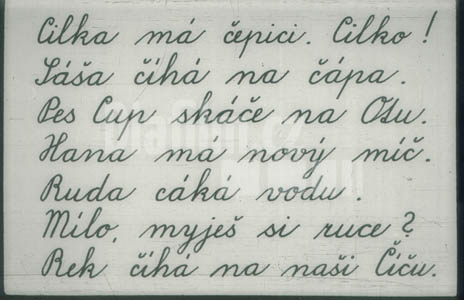 Cilka má čepici. Cilko!
Sáša číhá na čápa.
Pes Cup skáče na Otu.
Hana má nový míč.
Ruda cáká vodu.
Mílo, myješ si ruce?
Rek číhá na naši Číču.